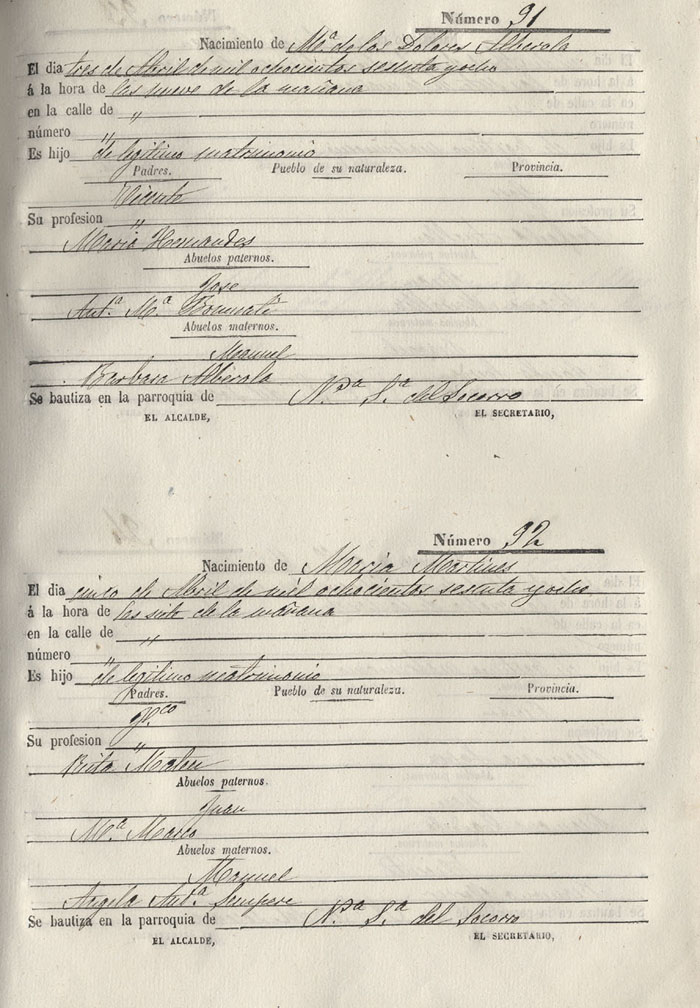 Número 91
Nacimiento de Mª de los Dolores Alberola
El dia tres de Abril de mil ochocientos sesenta y ocho
á la hora de las nueve de la mañana
en la calle de "
número "
Es hijo de legitimo matrimonio
Padres. Pueblo de su naturaleza. Provincia.
Vicente
Su profesion "
Maria Hernandes
Abuelos paternos.
Jose
Antª Mª
Abuelos maternos.
Manuel
Barbara Alberola
Se bautiza en la parroquia de Nª Sª del Socorro
EL ALCALDE, EL SECRETARIO,
Número 92
Nacimiento de Maria Martines
El dia cinco de Abril de mil ochocientos sesenta y ocho
á la hora de las siete de la mañana
en la calle de "
número "
Es hijo de legitimo matrimonio
Padres. Pueblo de su naturaleza. Provincia.
Frco
Su profesion "
Rita
Abuelos paternos.
Juan
Mª Marco
Abuelos maternos.
Manuel
Angela Antª Sempere
Se bautiza en la parroquia de Nª Sª del Socorro
EL ALCALDE, EL SECRETARIO,